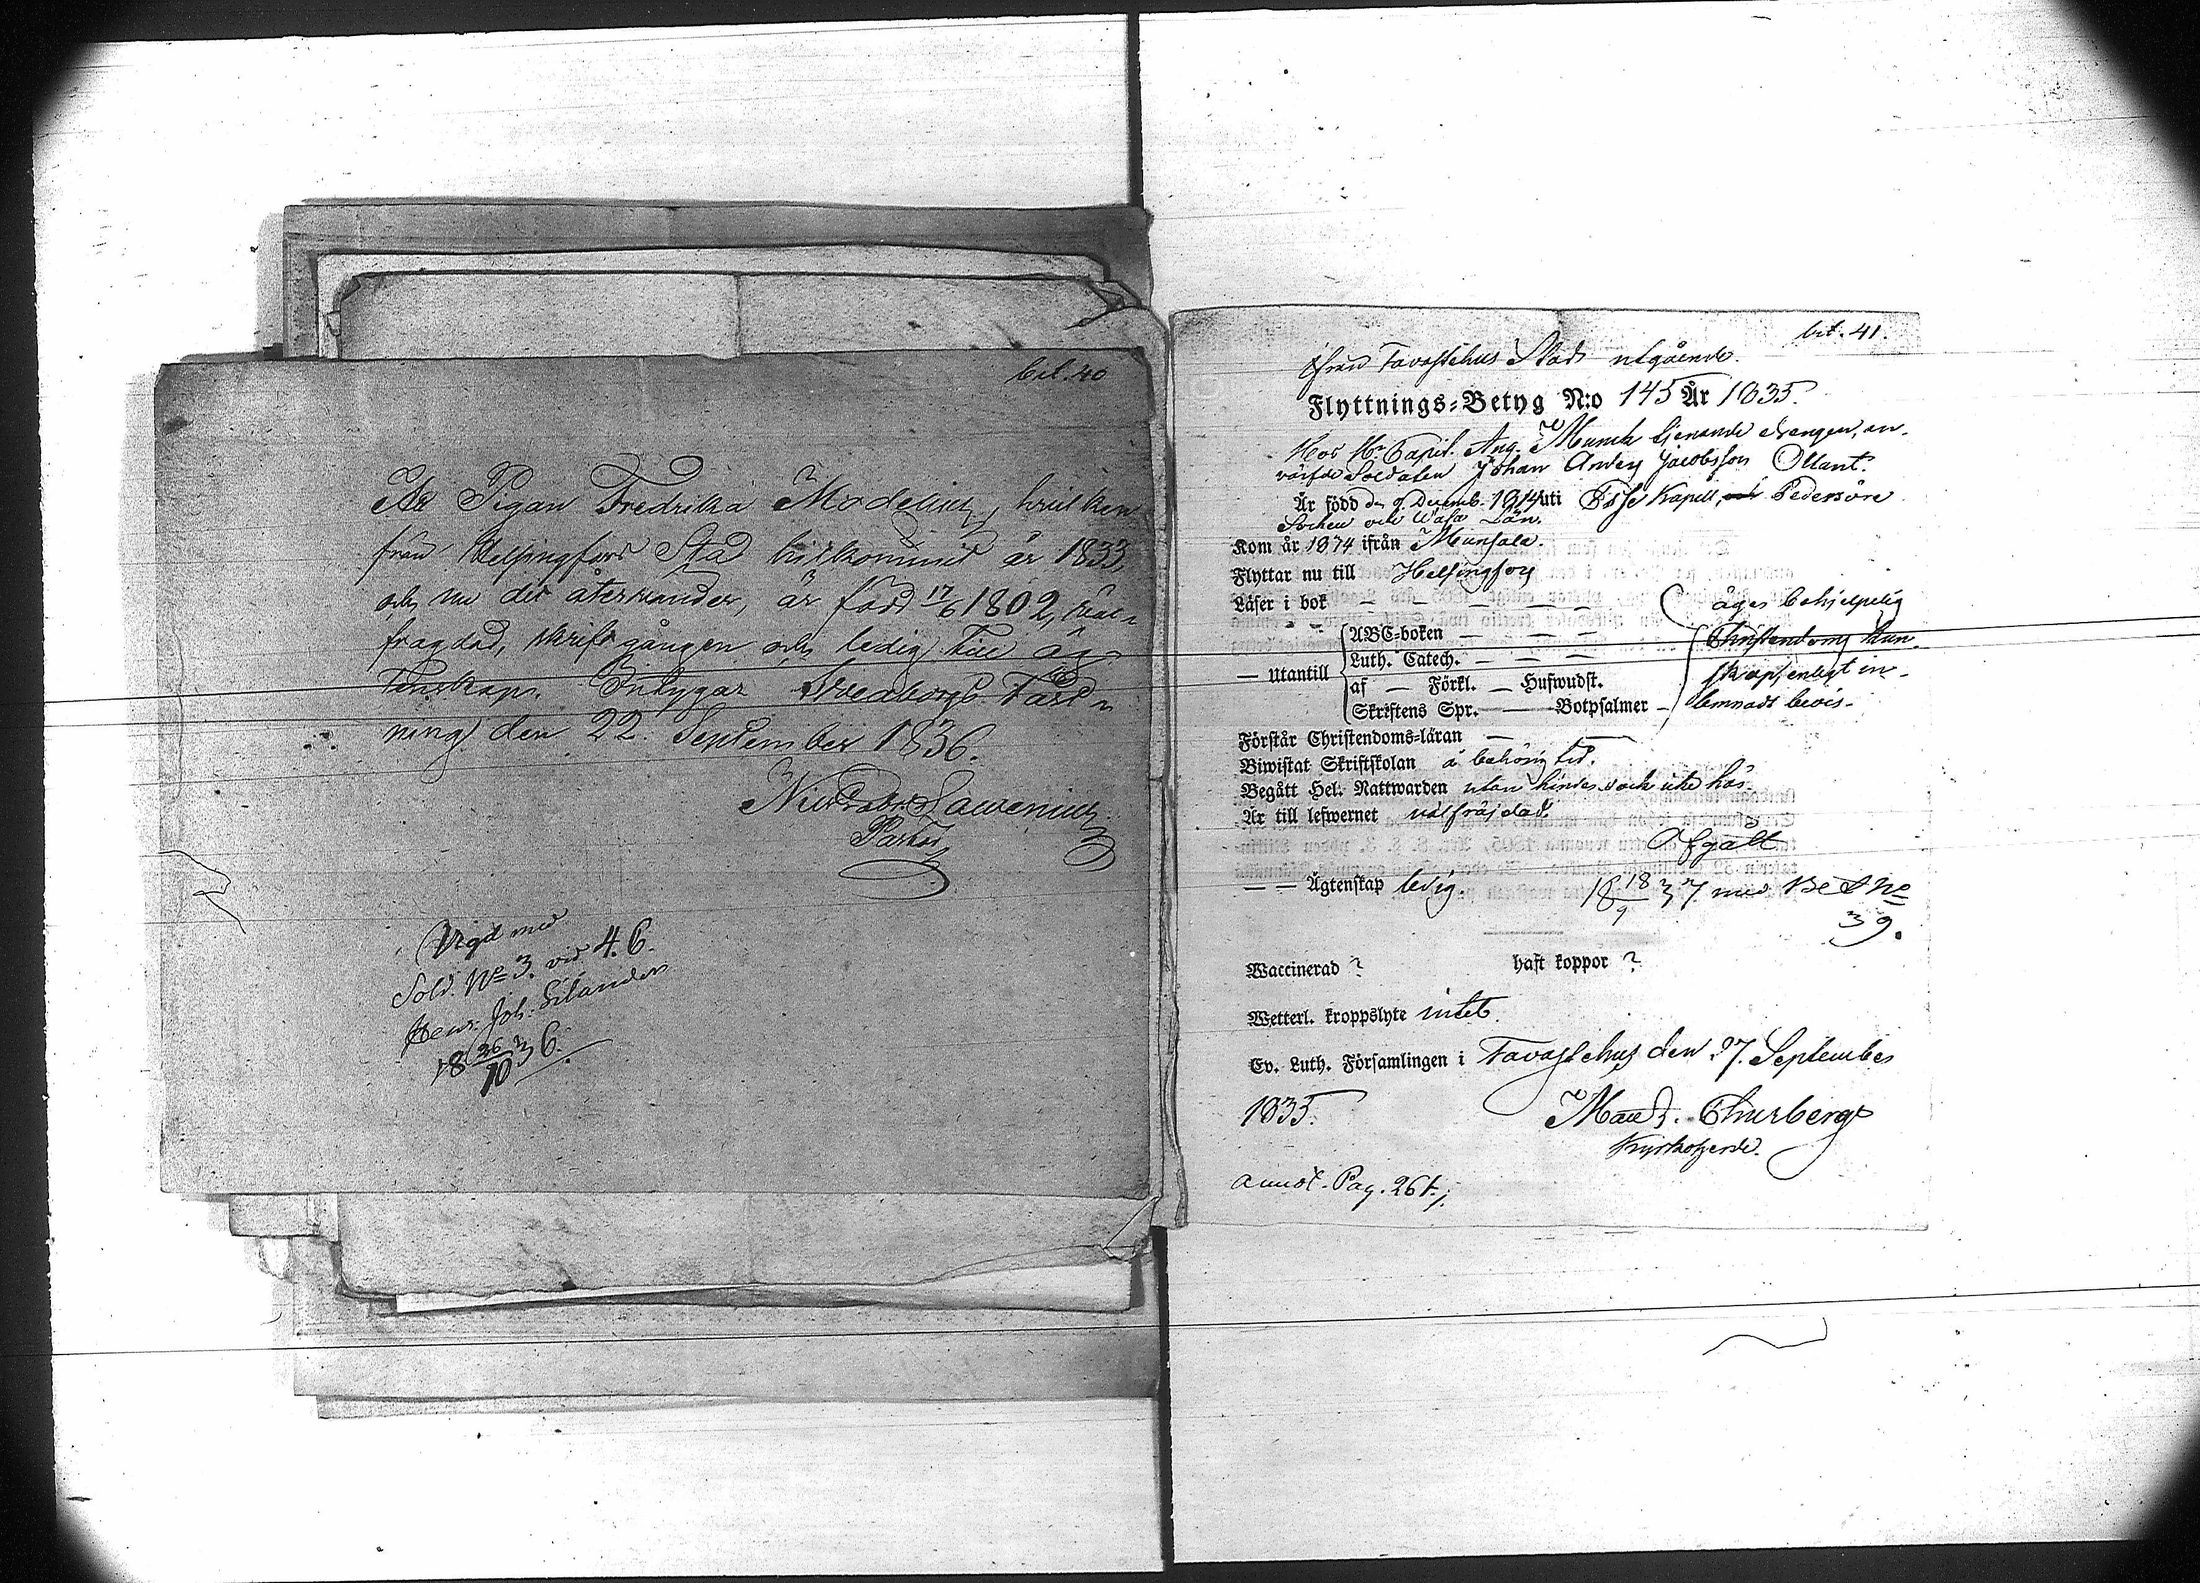 bet. 40
At Pigan Fredrika Modelius, hvilken
från Helsingfors Stad hitkommit år 1833,
och nu dit återvänder, är född 17/6 1802, väl-
fragdad, skriftgången och ledig till äg-
tenskap. Intygar Sveaborgs Fäst-
ning den 22 September 1836.
Lawenius
Pastor
Vigd med
Sold. No 3. vid 4. C.
Henr: Joh: Silander
18 26/10 36.
bet. 41.
ifrån Tavastehus Stad utgående.
Flyttnings-Betyg N:o 145 År 1835.
Hos Hr Capit. Aug. Munck tjenande drengen, an-
värfde Soldaten Johan Anders Jacobsson Ollant.
Är född den 9 Decemb. 1814 uti Esse Kapell, Pedersöre
Socken och Wasa Län.
Kom år 1834 ifrån Munsala.
Flyttar nu till Helsingfors
Läser i bok — — — — — äges behjelpelig
— Utantill ABC-boken — — — Christendoms kun-
Luth. Catech. — — — skap, enligt in-
af — Förkl. — Huswudst. lemnadt bevis.
Skriftens Spr. — Botpsalmer —
Förstår Christendoms-läran — —
Biwistat Skriftskolan å behörig tid.
Begått Hel. Nattwarden utan hinder, dock icke här.
Är till lefwernet välfräjdad.
Afgått
— — Ägtenskap ledig. 18 18/9 37 med Bet No
39.
Waccinerad ? haft koppor ?
Wetterl. kroppslyte intet.
Ev. Luth. Församlingen i Tavastehus den 27. September
1835. Thurberg
Kyrkoherde.
annot. Pag. 261.